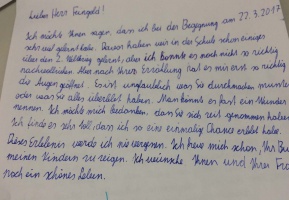 Lieber Herr Feingold!
Ich möchte Ihnen sagen, dass ich bei der Begegnung am 22.3.2017
sehr viel gelernt habe. Davor haben wir in der Schule schon einiges
über den 2. Weltkrieg gelernt, aber ich konnte es noch nicht so richtig
nachvollziehen. Aber nach Ihrer Erzählung hat es mir erst so richtig
die Augen geöffnet. Es ist unglaublich was Sie durchmachen mussten
oder was Sie alles überlebt haben. Man könnte es fast ein Wunder
nennen. Ich möchte mich bedanken, dass Sie sich Zeit genommen haben.
Ich finde es sehr toll, dass ich so eine einmalige Chance erlebt habe.
Dieses Erlebnis werde ich nie vergessen. Ich freue mich schon, Ihr Bu
meinen Kindern zu zeigen. Ich wünsche Ihnen und Ihrer Fra
noch ein schönes Leben.